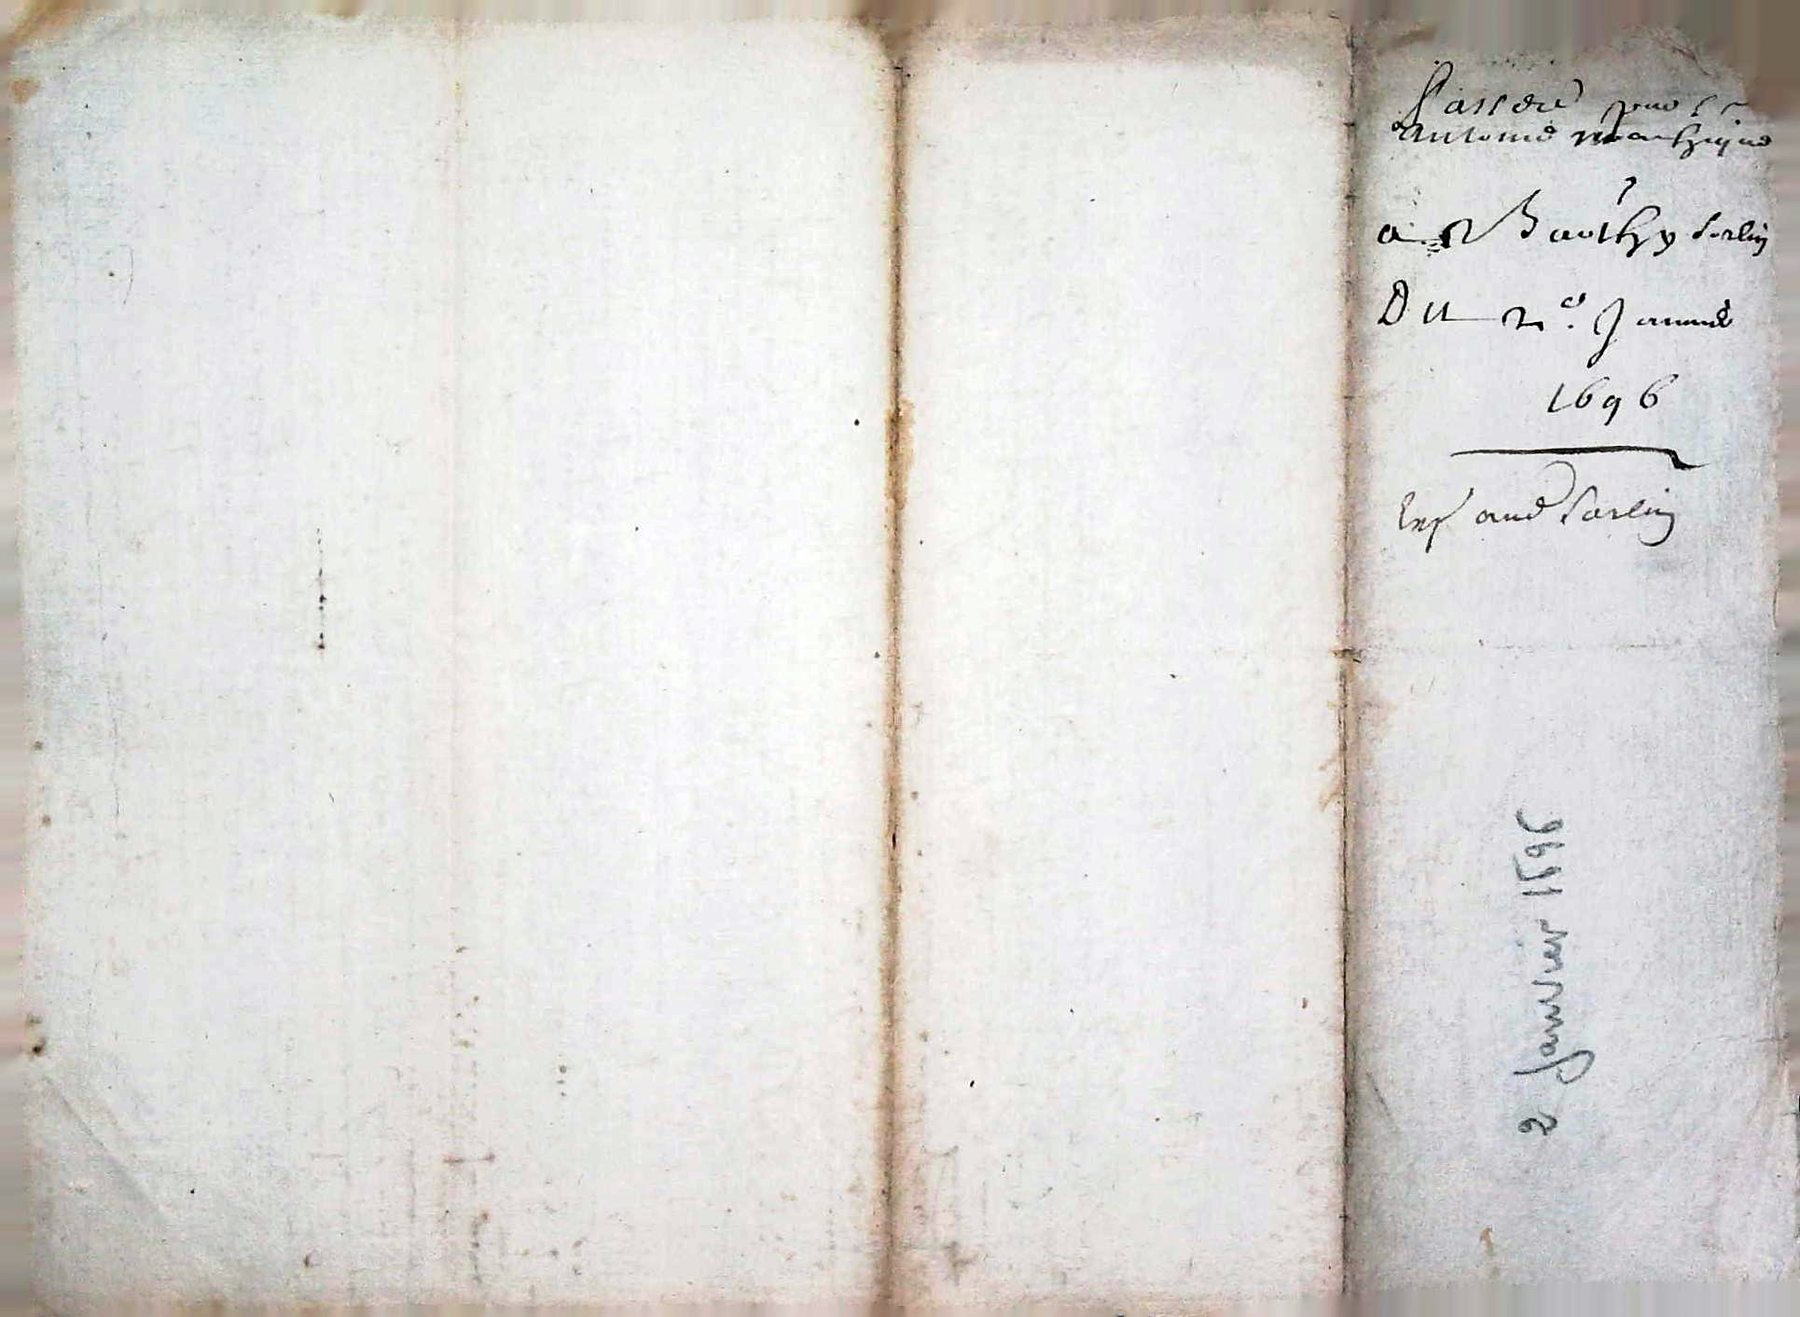 Passerie pour Sr
antoine marhique
a Barthy Sorlin
Du 2e. Janvie
1696
Exp and Sorlin
2 Janvier 1596